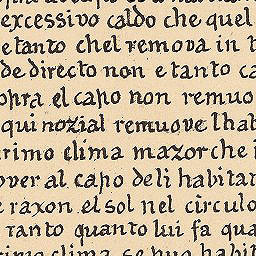 excessivo caldo che quel
e tanto chel remova in t
de directo non e tanto ca
opra el capo non remuo
quinozial remuove lhab
rimo clima mazor che
over al capo de li habitan
e raxon el sol nel circulo
tanto quanto lui fa qua